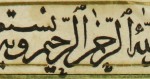 الله الرحمن الرحيم وبه نستعين